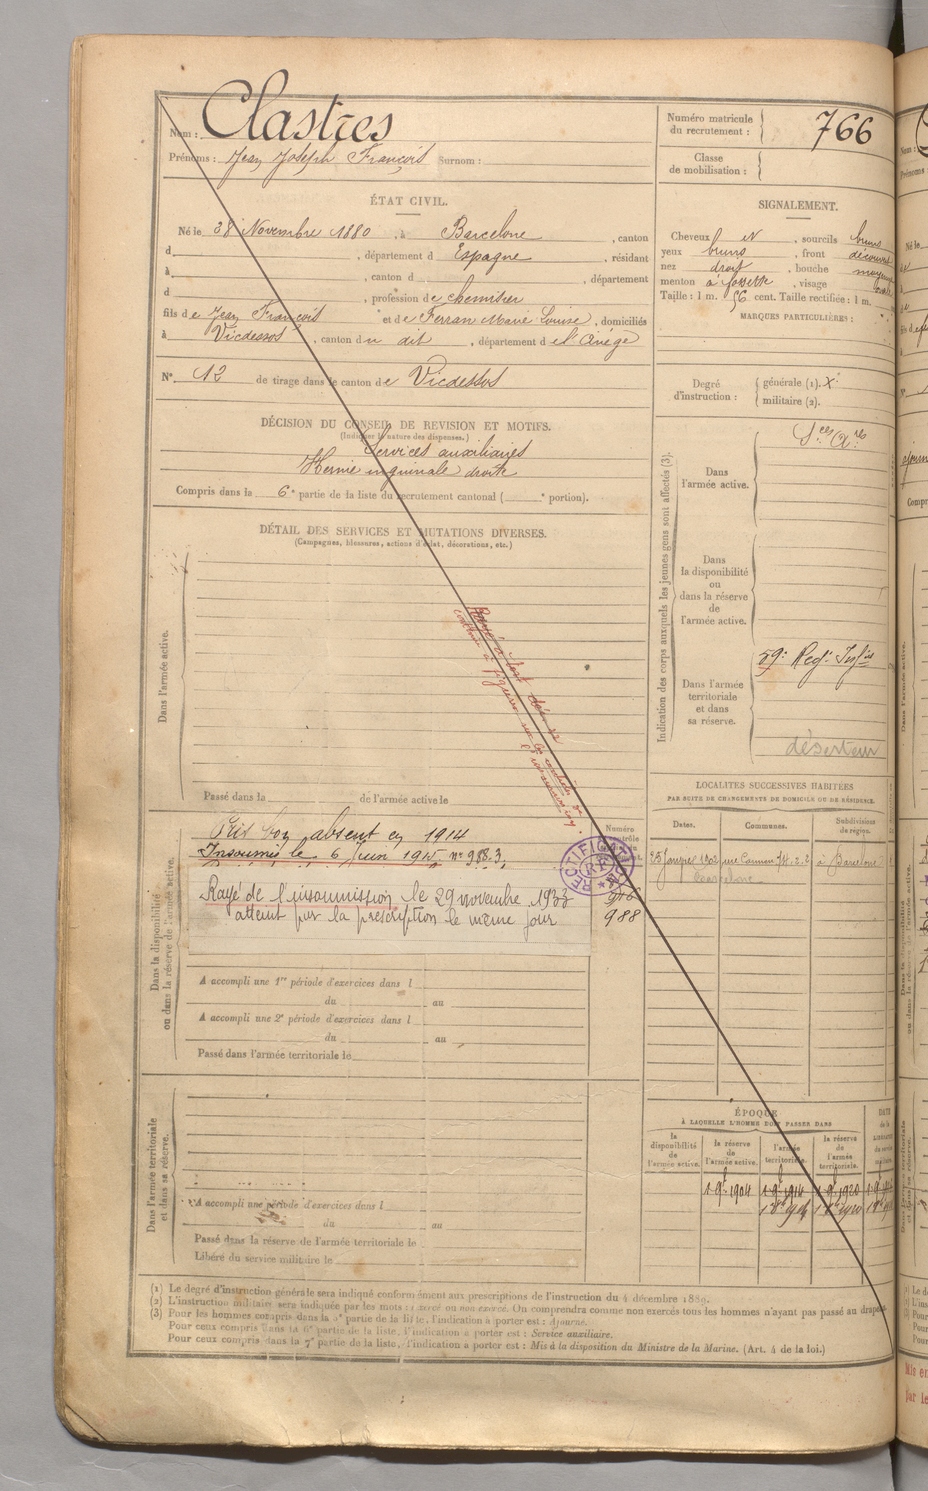 Nom : Clastres
Prénoms : Jean Joseph François Surnom :
Numéro matricule du recrutement : 766
Classe de mobilisation :
ÉTAT CIVIL.
Né le 28 Novembre 1880, à Barcelone, canton
d , département d Espagne, résidant
à , canton d , département
d , profession de chemisier
fils de Jean François et de Ferran Marie Louise, domiciliés
à Vicdessos, canton du dit, département de l'Ariège
N° 12 de tirage dans le canton de Vicdessos
SIGNALEMENT.
Cheveux N , sourcils bruns
yeux bruns , front découvert
nez droit , bouche moyenne
menton à fossette , visage ovale
Taille : 1 m. 56 cent. Taille rectifiée : 1 m.
MARQUES PARTICULIÈRES :
Degré d'instruction : générale (1). X
militaire (2).
DÉCISION DU CONSEIL DE REVISION ET MOTIFS.
(Indiquer la nature des dispenses.)
Services auxiliaires
Hernie inguinale droite
Compris dans la 6e partie de la liste du recrutement cantonal ( e portion).
DÉTAIL DES SERVICES ET MUTATIONS DIVERSES.
(Campagnes, blessures, actions d'éclat, décorations, etc.)
Dans l'armée active.
Rayé à tort
continue à figurer sur les contrôles de
l'insoumission
Passé dans la de l'armée active le
Indication des corps auxquels les jeunes gens sont affectés (3).
Dans l'armée active.
Sces Axres
Dans la disponibilité ou dans la réserve de l'armée active.
Dans l'armée territoriale et dans sa réserve.
59e Regt Infie
déserteur
Dans la disponibilité ou dans la réserve de l'armée active.
Prit bon absent en 1914
Insoumis le 6 Juin 1915 n° 988.3.
Rayé de l'insoumission le 29 novembre 1933
atteint par la prescription le même jour
RECTIFICATION
RF
988
A accompli une 1re période d'exercices dans l
du au
A accompli une 2e période d'exercices dans l
du au
Passé dans l'armée territoriale le
LOCALITÉS SUCCESSIVES HABITÉES
PAR SUITE DE CHANGEMENTS DE DOMICILE OU DE RÉSIDENCE.
Dates. Communes. Subdivisions de région.
à Barcelone
Barcelone
Dans l'armée territoriale et dans sa réserve.
A accompli une période d'exercices dans l
du au
Passé dans la réserve de l'armée territoriale le
Libéré du service militaire le
ÉPOQUE
À LAQUELLE L'HOMME DOIT PASSER DANS
la disponibilité de l'armée active. la réserve de l'armée active. l'armée territoriale. la réserve de l'armée territoriale.
1 9 1904 1 9 1914 1 9 1920
(1) Le degré d'instruction générale sera indiqué conformément aux prescriptions de l'instruction du 4 décembre 1889.
(2) L'instruction militaire sera indiquée par les mots : exercé ou non exercé. On comprendra comme non exercés tous les hommes n'ayant pas passé au drapeau.
(3) Pour les hommes compris dans la 5e partie de la liste, l'indication à porter est : Ajourné.
Pour ceux compris dans la 6e partie de la liste, l'indication à porter est : Service auxiliaire.
Pour ceux compris dans la 7e partie de la liste, l'indication à porter est : Mis à la disposition du Ministre de la Marine. (Art. 4 de la loi.)